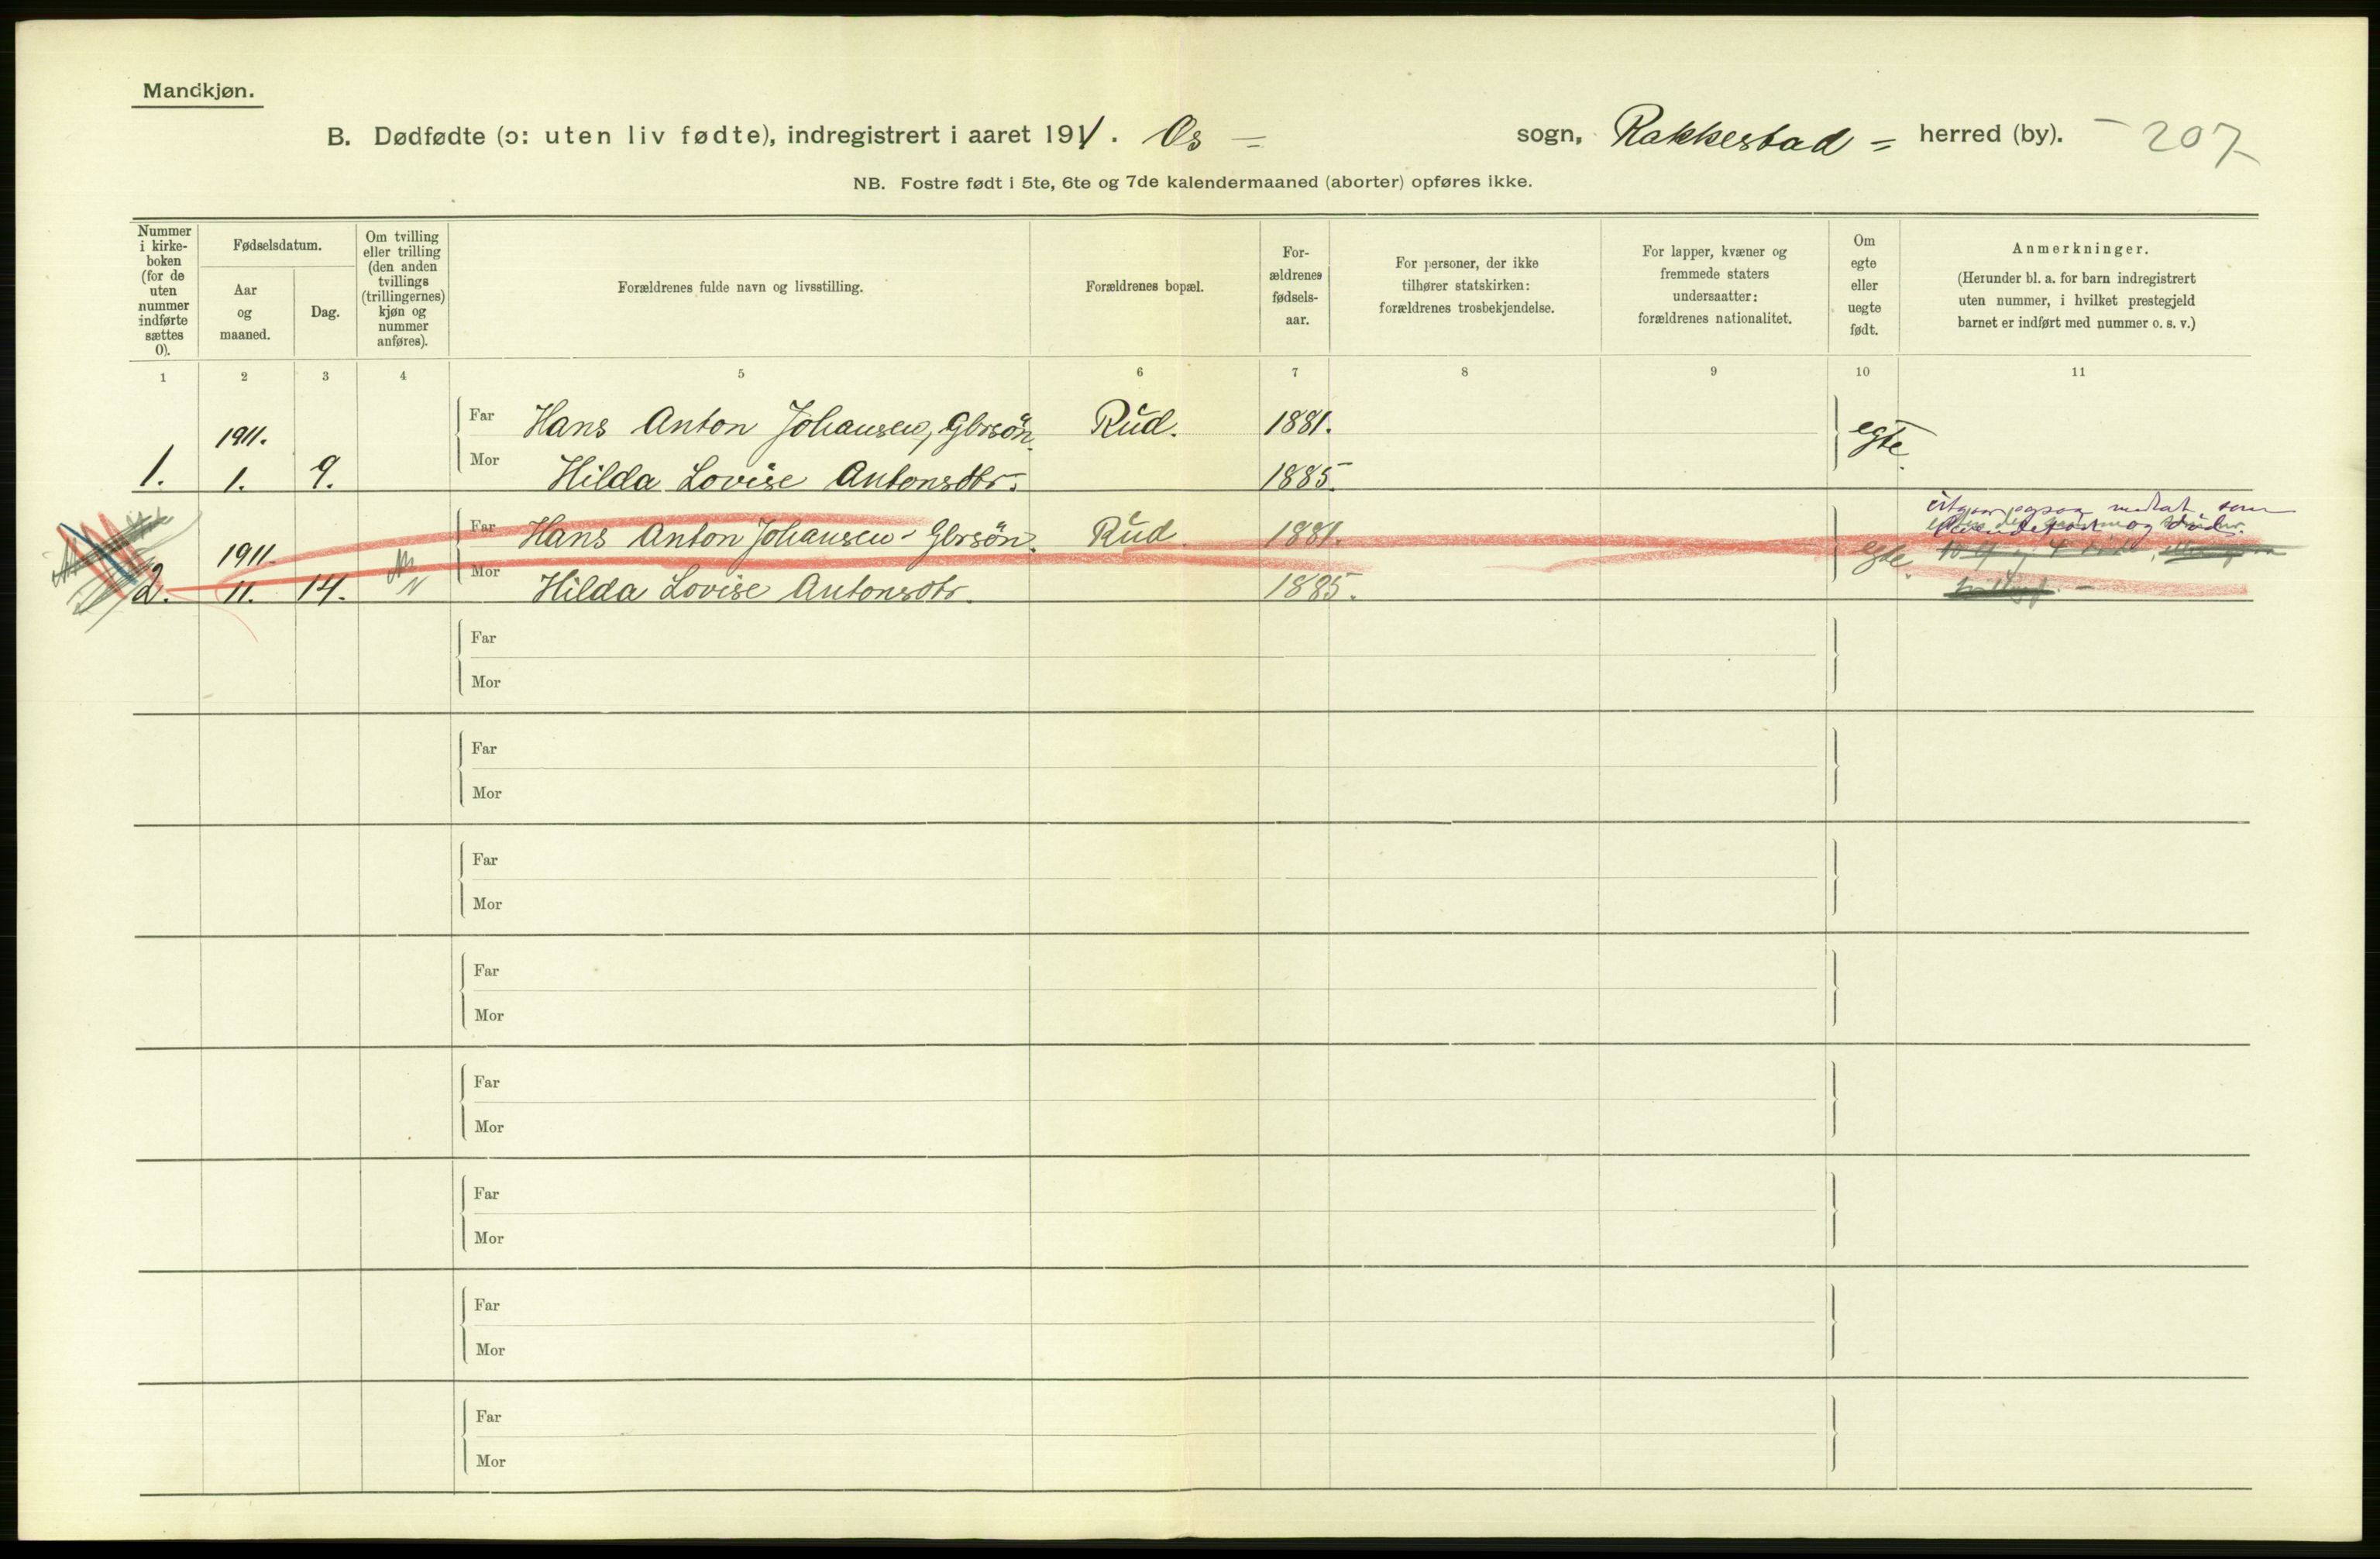 Mandkjøn.
B. Dødfødte (ɔ: uten liv fødte), indregistrert i aaret 1911. Os = sogn, Rakkestad = herred (by). - 207
NB. Fostre født i 5te, 6te og 7de kalendermaaned (aborter) opføres ikke.
Nummer
i kirke-
boken
(for de
uten
nummer
indførte
sættes
0).
Fødselsdatum.
Aar
og
maaned.
Dag.
Om tvilling
eller trilling
(den anden
tvillings
(trillingernes)
kjøn og
nummer
anføres).
Forældrenes fulde navn og livsstilling.
Forældrenes bopæl.
For-
ældrenes
fødsels-
aar.
For personer, der ikke
tilhører statskirken:
forældrenes trosbekjendelse.
For lapper, kvæner og
fremmede staters
undersaatter:
forældrenes nationalitet.
Om
egte
eller
uegte
født.
Anmerkninger.
(Herunder bl. a. for barn indregistrert
uten nummer, i hvilket prestegjeld
barnet er indført med nummer o. s. v.)
1 2 3 4 5 6 7 8 9 10 11
Far Hans Anton Johansen, Gbrsön. Rud. 1881.
1911. egte.
1. 1. 9. Mor Hilda Lovise Antonsdtr. 1885.
Far Hans Anton Johansen - Gbrsön. Rud. 1881.
1911. egte.
2. 11. 14. Mor Hilda Lovise Antonsdtr. 1885.
som
og
Far
Mor
Far
Mor
Far
Mor
Far
Mor
Far
Mor
Far
Mor
Far
Mor
Far
Mor